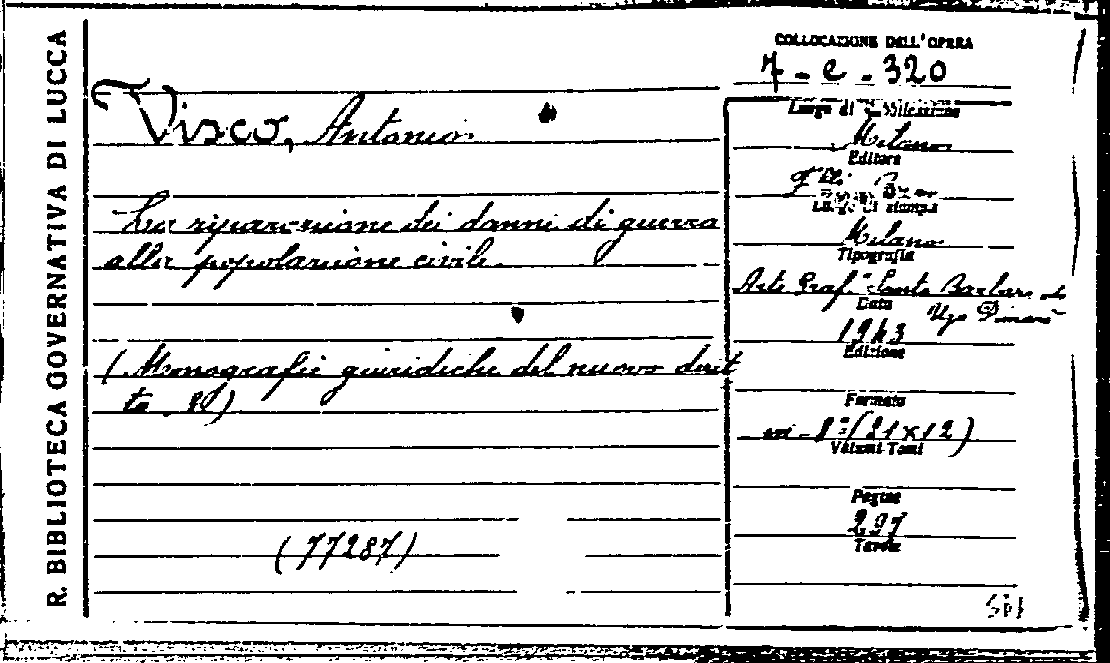 R. BIBLIOTECA GOVERNATIVA DI LUCCA
COLLOCAZIONE DELL'OPERA
7 - e - 320
Visco, Antonio
La riparazione dei danni di guerra
alla popolazione civile.
(Monografie giuridiche del nuovo dirit
to
(77287)
Luogo di Pubblicazione
Milano
Editore
F.lli
Luogo di stampa
Milano
Tipografia
Arte Graf. Santa Barbara di
Ugo
Data
1943
Edizione
Formato
in - 8° (21 x 12)
Volumi Tomi
Pagine
297
Tavole